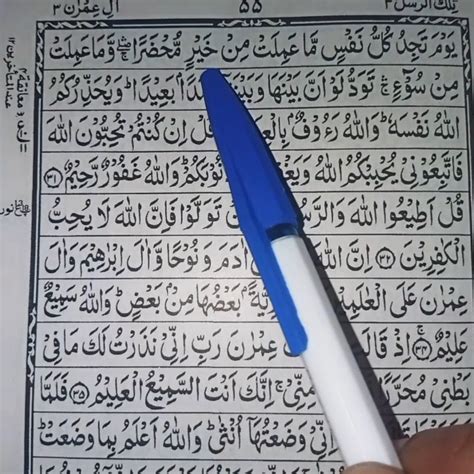 تلك الرسل ٣ ٥٥ اٰل عمرٰن ٣
يَوْمَ تَجِدُ كُلُّ نَفْسٍ مَّا عَمِلَتْ مِنْ خَيْرٍ مُّحْضَرًا وَّمَا عَمِلَتْ
مِنْ سُوْٓءٍ تَوَدُّ لَوْ اَنَّ بَيْنَهَا وَبَيْنَهٗٓ اَمَدًۢا بَعِيْدًا ؕ وَيُحَذِّرُكُمُ
اللّٰهُ نَفْسَهٗ ؕ وَاللّٰهُ رَءُوْفٌۢ قُلْ اِنْ كُنْتُمْ تُحِبُّوْنَ اللّٰهَ
فَاتَّبِعُوْنِيْ يُحْبِبْكُمُ اللّٰهُ وَيَغْفِرْ ذُنُوْبَكُمْ ؕ وَاللّٰهُ غَفُوْرٌ رَّحِيْمٌ ﴿٣١﴾
قُلْ اَطِيْعُوا اللّٰهَ وَالرَّسُوْلَ تَوَلَّوْا فَاِنَّ اللّٰهَ لَا يُحِبُّ
الْكٰفِرِيْنَ ﴿٣٢﴾ اِنَّ اللّٰهَ اٰدَمَ وَنُوْحًا وَّاٰلَ اِبْرٰهِيْمَ وَاٰلَ
عِمْرٰنَ عَلَى الْعٰلَمِيْنَ ذُرِّيَّةًۢ بَعْضُهَا مِنْۢ بَعْضٍ ؕ وَاللّٰهُ سَمِيْعٌ
عَلِيْمٌ ﴿٣٤﴾ اِذْ قَالَتِ عِمْرٰنَ رَبِّ اِنِّيْ نَذَرْتُ لَكَ مَا فِيْ
بَطْنِيْ مُحَرَّرًا مِنِّيْ ۚ اِنَّكَ اَنْتَ السَّمِيْعُ الْعَلِيْمُ ﴿٣٥﴾ فَلَمَّا
اِنِّيْ وَضَعْتُهَآ اُنْثٰى ؕ وَاللّٰهُ اَعْلَمُ بِمَا وَضَعَتْ ؕ